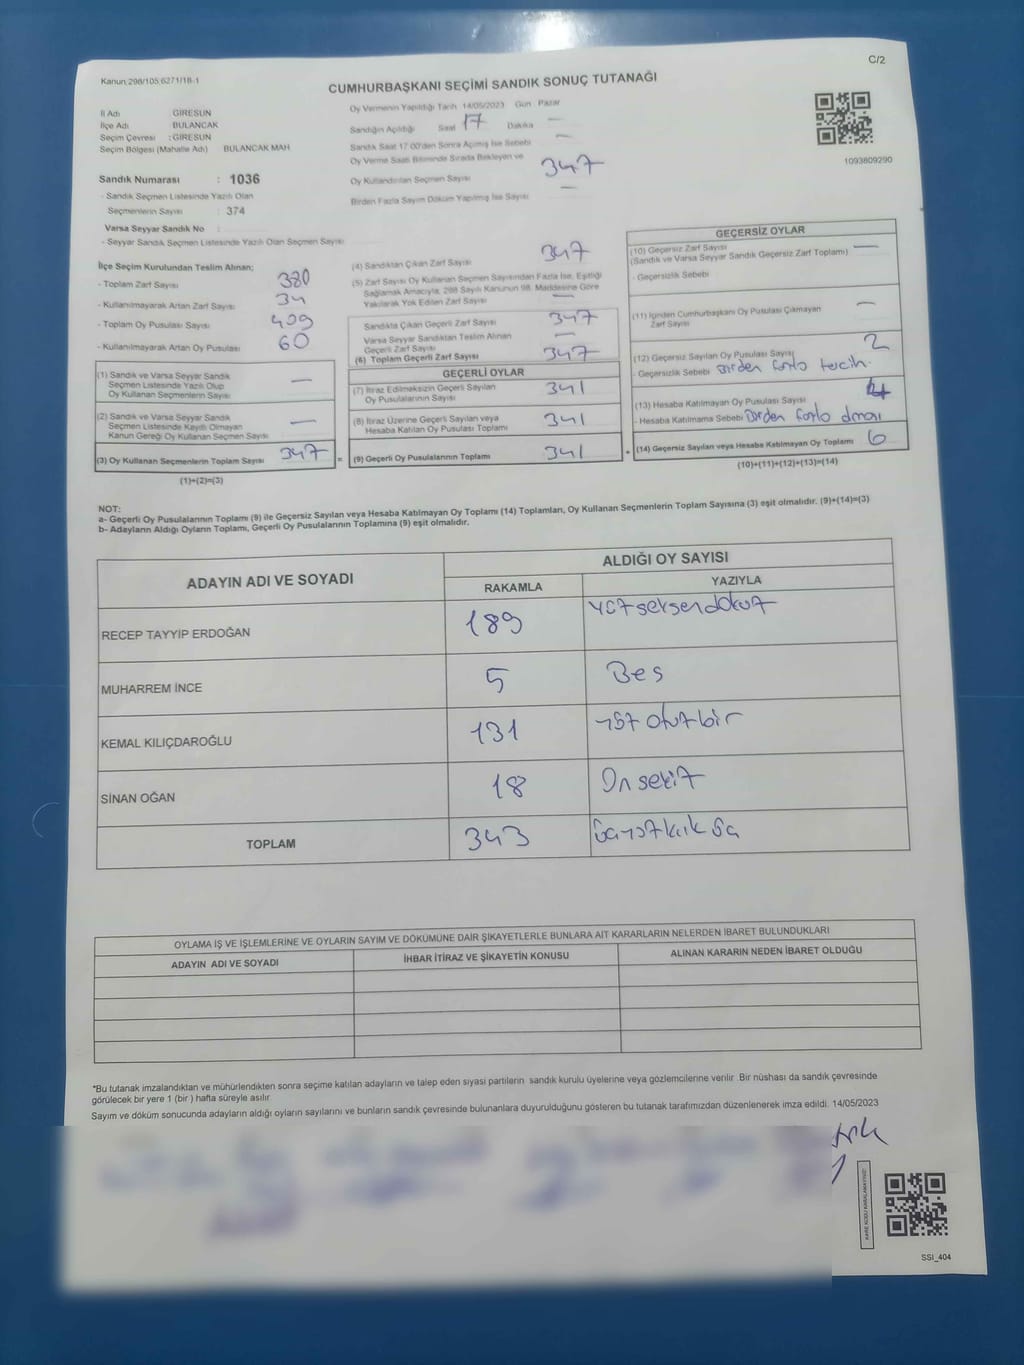 Kanun:298/105 6271/18-1
C/2
CUMHURBAŞKANI SEÇİMİ SANDIK SONUÇ TUTANAĞI
İl Adı GİRESUN
İlçe Adı BULANCAK
Seçim Çevresi : GİRESUN
Seçim Bölgesi (Mahalle Adı) BULANCAK MAH
Sandık Numarası : 1036
- Sandık Seçmen Listesinde Yazılı Olan
Seçmenlerin Sayısı : 374
Varsa Seyyar Sandık No :
- Seyyar Sandık Seçmen Listesinde Yazılı Olan Seçmen Sayısı
Oy Vermenin Yapıldığı Tarih 14/05/2023 Gün Pazar
Sandığın Açıldığı Saat 17 Dakika —
Sandık Saat 17 00'den Sonra Açılmış İse Sebebi —
Oy Verme Saati Bitiminde Sırada Bekleyen ve
Oy Kullandırılan Seçmen Sayısı 347
Birden Fazla Sayım Döküm Yapılmış İse Sayısı —
1093809290
İlçe Seçim Kurulundan Teslim Alınan;
- Toplam Zarf Sayısı 380
- Kullanılmayarak Artan Zarf Sayısı 34
- Toplam Oy Pusulası Sayısı 409
- Kullanılmayarak Artan Oy Pusulası 60
(1) Sandık ve Varsa Seyyar Sandık
Seçmen Listesinde Yazılı Olup
Oy Kullanan Seçmenlerin Sayısı —
(2) Sandık ve Varsa Seyyar Sandık
Seçmen Listesinde Kayıtlı Olmayan
Kanun Gereği Oy Kullanan Seçmen Sayısı —
(3) Oy Kullanan Seçmenlerin Toplam Sayısı 347 =
(1)+(2)=(3)
(4) Sandıktan Çıkan Zarf Sayısı 347
(5) Zarf Sayısı Oy Kullanan Seçmen Sayısından Fazla İse, Eşitliği
Sağlamak Amacıyla, 298 Sayılı Kanunun 98. Maddesine Göre
Yakılarak Yok Edilen Zarf Sayısı —
Sandıkta Çıkan Geçerli Zarf Sayısı 347
Varsa Seyyar Sandıktan Teslim Alınan
Geçerli Zarf Sayısı —
(6) Toplam Geçerli Zarf Sayısı 347
GEÇERLİ OYLAR
(7) İtiraz Edilmeksizin Geçerli Sayılan
Oy Pusulalarının Sayısı 341
(8) İtiraz Üzerine Geçerli Sayılan veya
Hesaba Katılan Oy Pusulası Toplamı 341
(9) Geçerli Oy Pusulalarının Toplamı 341 +
GEÇERSİZ OYLAR
(10) Geçersiz Zarf Sayısı —
(Sandık ve Varsa Seyyar Sandık Geçersiz Zarf Toplamı)
- Geçersizlik Sebebi
(11) İçinden Cumhurbaşkanı Oy Pusulası Çıkmayan
Zarf Sayısı —
(12) Geçersiz Sayılan Oy Pusulası Sayısı 2
- Geçersizlik Sebebi Birden fazla tercih.
(13) Hesaba Katılmayan Oy Pusulası Sayısı 4
- Hesaba Katılmama Sebebi Birden fazla olması
(14) Geçersiz Sayılan veya Hesaba Katılmayan Oy Toplamı 6
(10)+(11)+(12)+(13)=(14)
NOT:
a- Geçerli Oy Pusulalarının Toplamı (9) ile Geçersiz Sayılan veya Hesaba Katılmayan Oy Toplamı (14) Toplamları, Oy Kullanan Seçmenlerin Toplam Sayısına (3) eşit olmalıdır. (9)+(14)=(3)
b- Adayların Aldığı Oyların Toplamı, Geçerli Oy Pusulalarının Toplamına (9) eşit olmalıdır.
ADAYIN ADI VE SOYADI ALDIĞI OY SAYISI
RAKAMLA YAZIYLA
RECEP TAYYİP ERDOĞAN 189 yüzseksendokuz
MUHARREM İNCE 5 Beş
KEMAL KILIÇDAROĞLU 131 yüz otuz bir
SİNAN OĞAN 18 On sekiz
TOPLAM 343 üçyüzkırk üç
OYLAMA İŞ VE İŞLEMLERİNE VE OYLARIN SAYIM VE DÖKÜMÜNE DAİR ŞİKAYETLERLE BUNLARA AİT KARARLARIN NELERDEN İBARET BULUNDUKLARI
ADAYIN ADI VE SOYADI İHBAR İTİRAZ VE ŞİKAYETİN KONUSU ALINAN KARARIN NEDEN İBARET OLDUĞU
*Bu tutanak imzalandıktan ve mühürlendikten sonra seçime katılan adayların ve talep eden siyasi partilerin sandık kurulu üyelerine veya gözlemcilerine verilir. Bir nüshası da sandık çevresinde
görülecek bir yere 1 (bir) hafta süreyle asılır
Sayım ve döküm sonucunda adayların aldığı oyların sayılarını ve bunların sandık çevresinde bulunanlara duyurulduğunu gösteren bu tutanak tarafımızdan düzenlenerek imza edildi. 14/05/2023
KARE KODU KARALAMAYINIZ!
SSİ_404